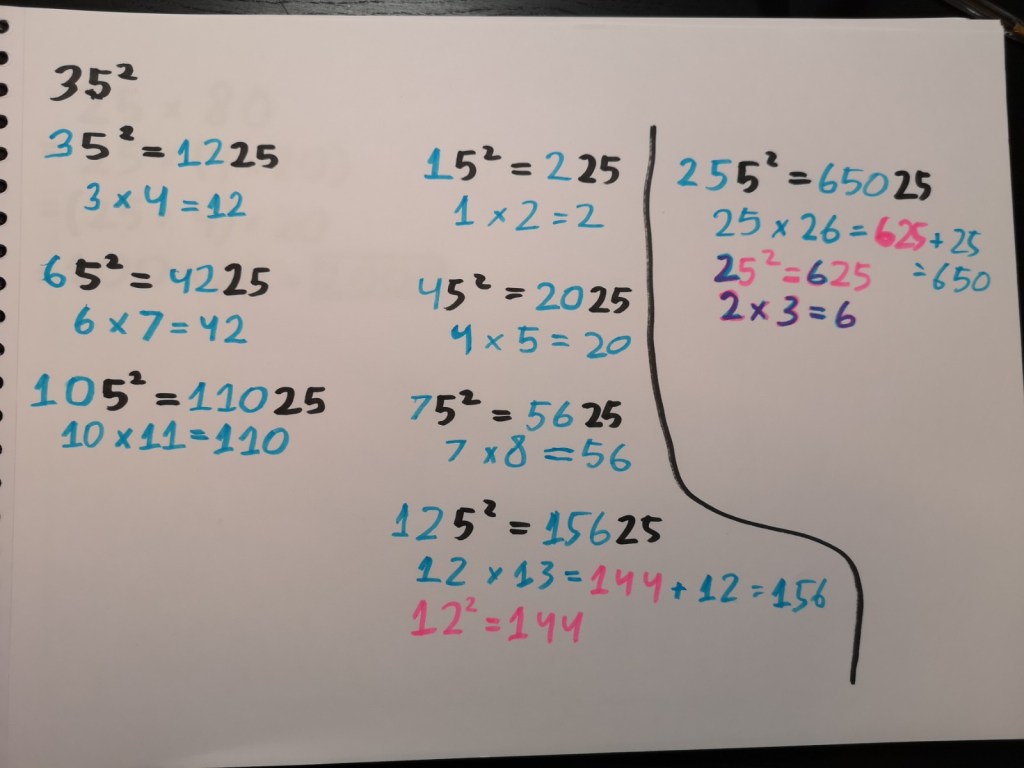 35²
35² = 1225
3 × 4 = 12
65² = 4225
6 × 7 = 42
105² = 11025
10 × 11 = 110
15² = 225
1 × 2 = 2
45² = 2025
4 × 5 = 20
75² = 5625
7 × 8 = 56
125² = 15625
12 × 13 = 144 + 12 = 156
12² = 144
255² = 65025
25 × 26 = 625 + 25
= 650
25² = 625
2 × 3 = 6